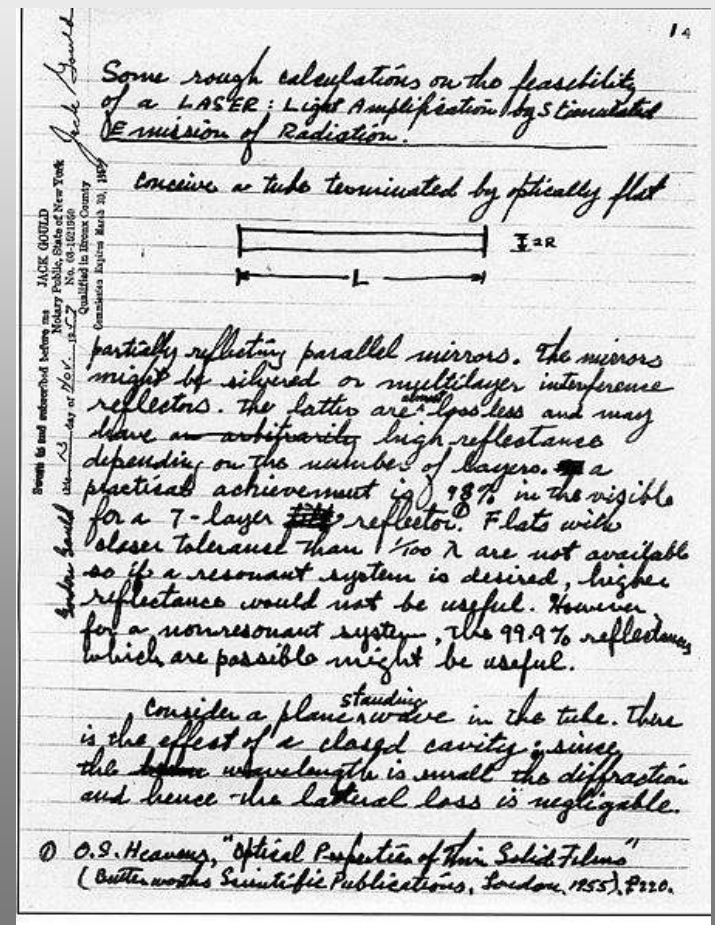 14
Some rough calculations on the feasibility
of a LASER: Light Amplification by Stimulated
Emission of Radiation.
conceive a tube terminated by optically flat
2R
L
partially reflecting parallel mirrors. The mirrors
might be silvered or multilayer interference
reflectors. The latter are almost lossless and may
have an arbitrarily high reflectance
depending on the number of layers. a
practical achievement is 98% in the visible
for a 7-layer reflector.① Flats with
closer tolerance than 1/100 λ are not available
so if a resonant system is desired, higher
reflectance would not be useful. However,
for a nonresonant system, the 99.9% reflectances
which are possible might be useful.
Consider a plane standing wave in the tube. There
is the effect of a closed cavity; since
the wavelength is small the diffraction
and hence the lateral loss is negligable.
① O.S. Heavens, "Optical Properties of Thin Solid Films"
(Butterworths Scientific Publications, London, 1955), P220.
Jack Gould
Sworn to and subscribed before me
this 13 day of Nov. 1957
JACK GOULD
Notary Public, State of New York
Qualified in Bronx County
Commission Expires March 30, 19
Gordon Gould